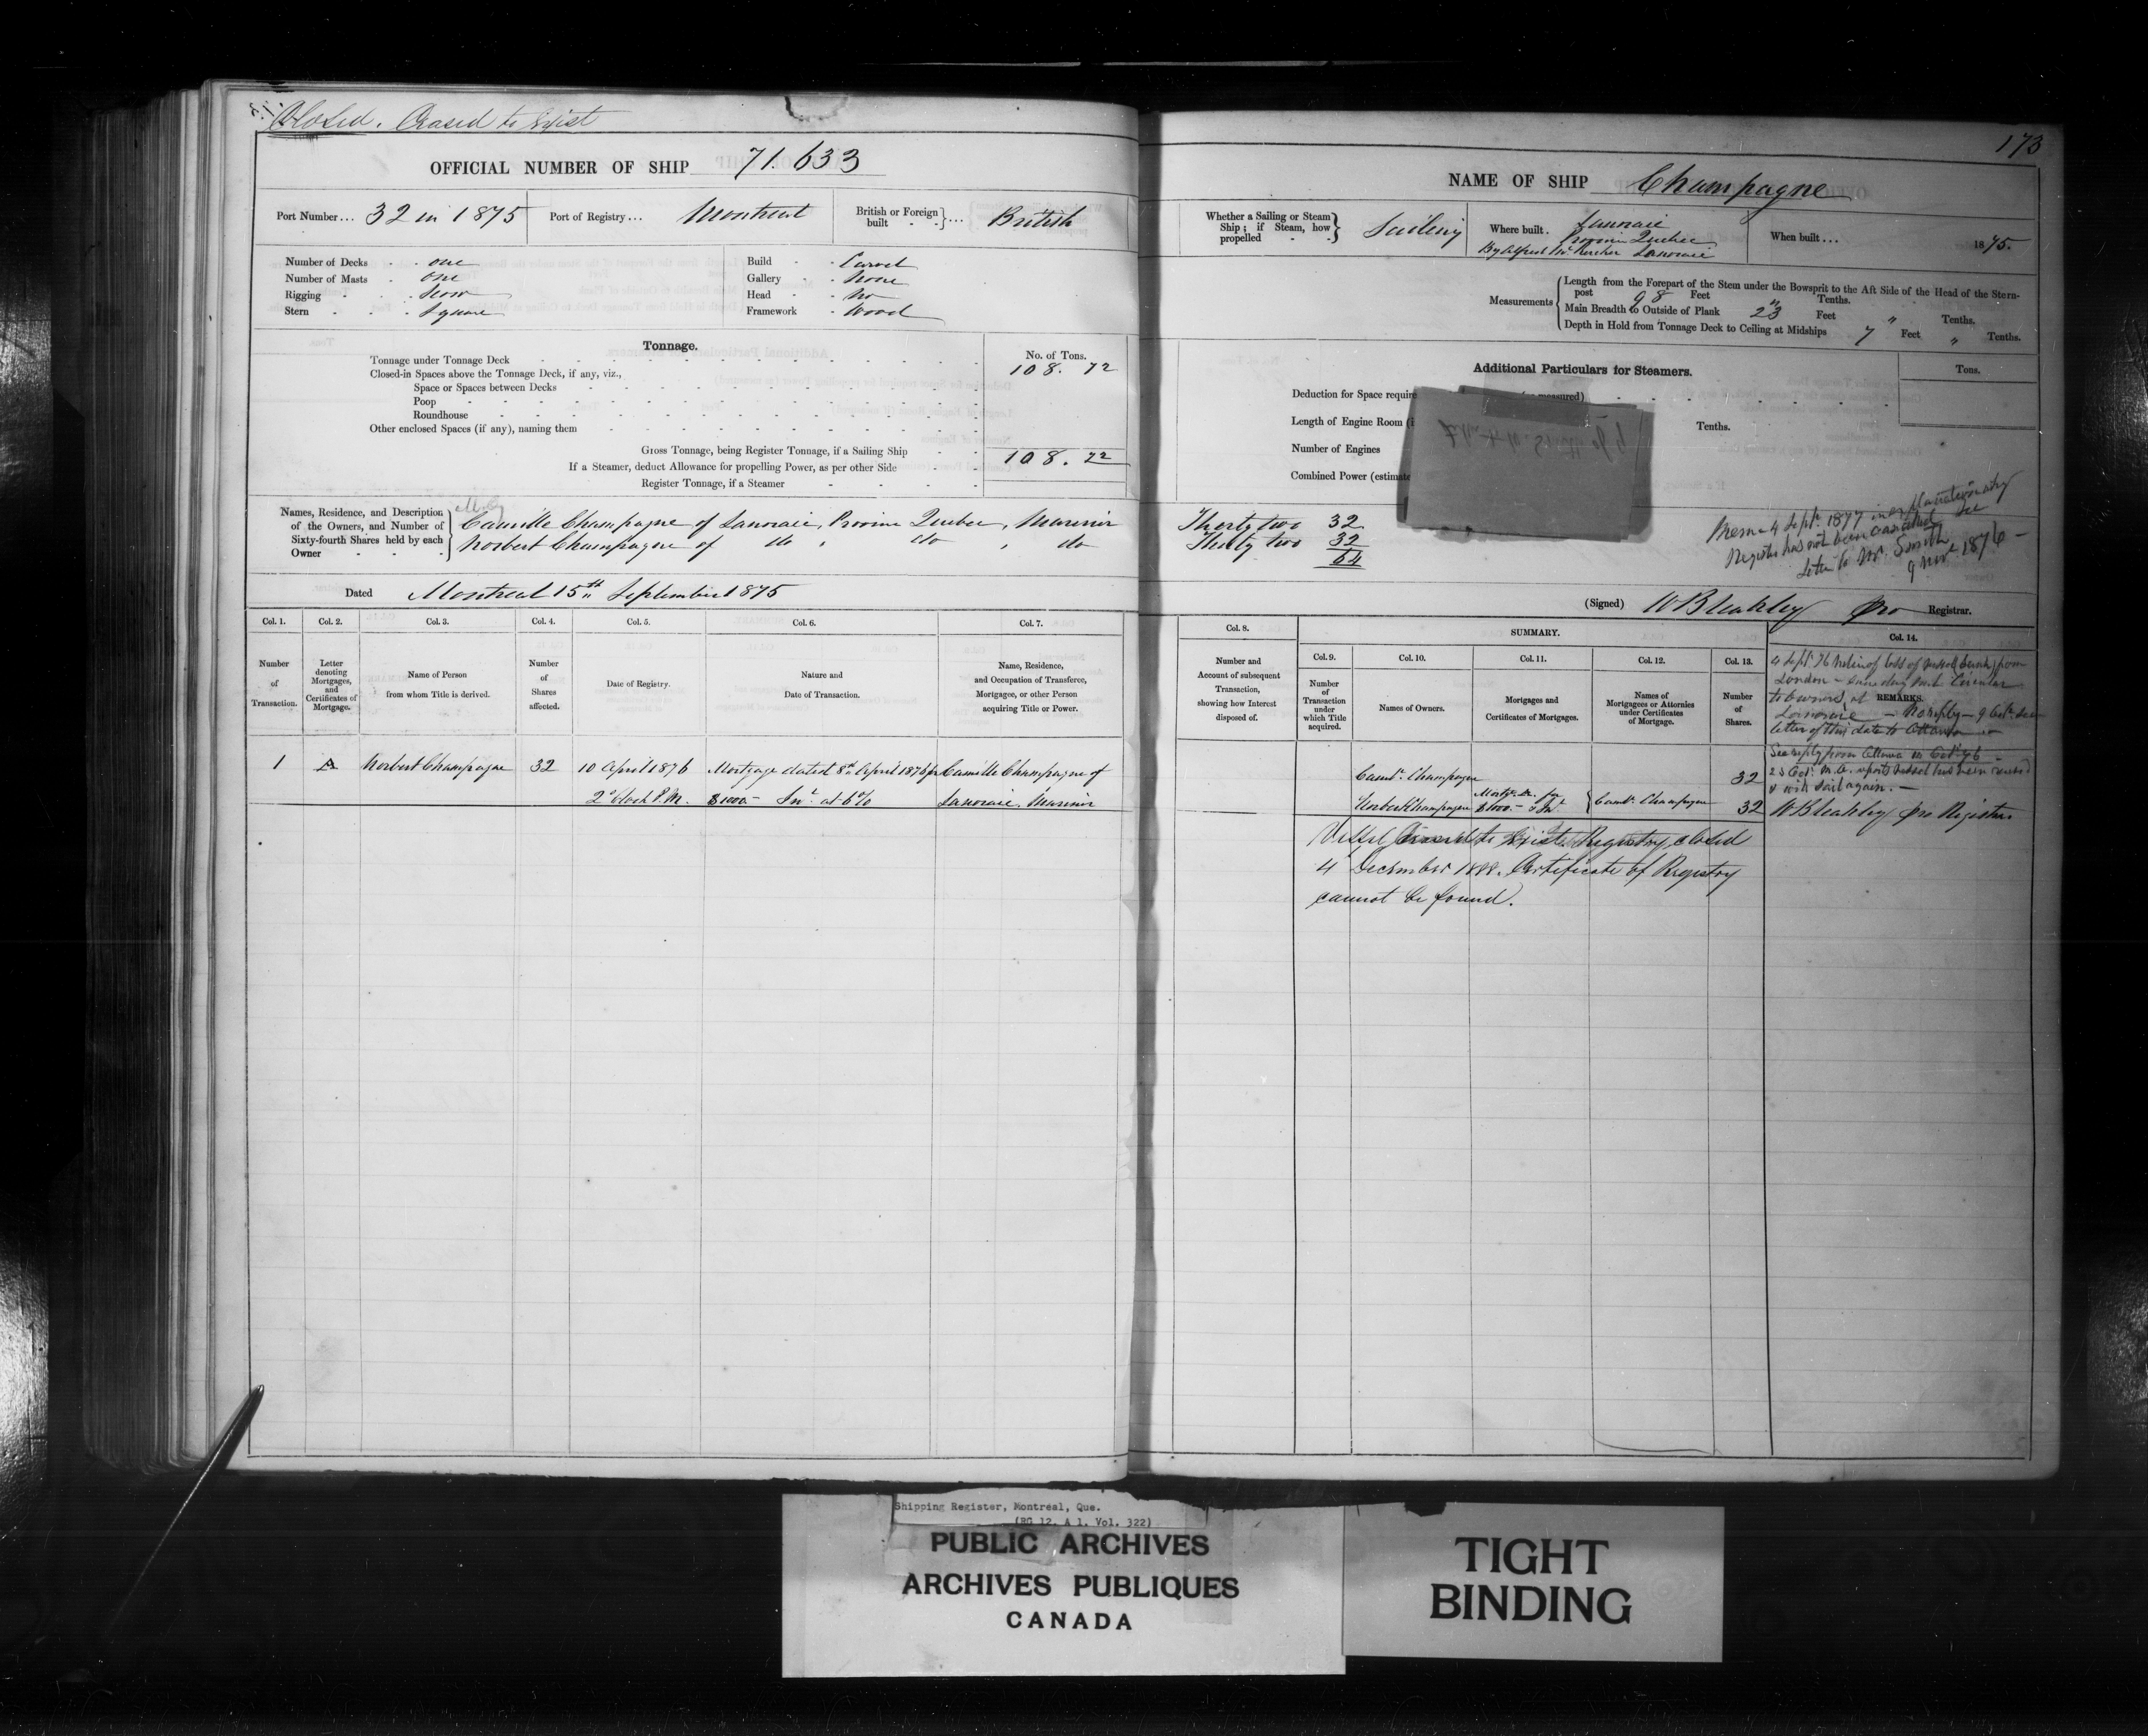 Closed. Ceased to Exist
OFFICIAL NUMBER OF SHIP 71.633
Port Number... 32 in 1875 Port of Registry... Montreal British or Foreign built } ... British
Number of Decks . one Build - Carvel
Number of Masts . one Gallery - None
Rigging - Scow Head - No
Stern . Square Framework - Wood
Tonnage. No. of Tons.
Tonnage under Tonnage Deck 108.72
Closed-in Spaces above the Tonnage Deck, if any, viz.,
Space or Spaces between Decks
Poop
Roundhouse
Other enclosed Spaces (if any), naming them
Gross Tonnage, being Register Tonnage, if a Sailing Ship 108.72
If a Steamer, deduct Allowance for propelling Power, as per other Side
Register Tonnage, if a Steamer
Names, Residence, and Description of the Owners, and Number of Sixty-fourth Shares held by each Owner
Camille Champagne of Lanoraie, Province Quebec, Mariner
Norbert Champagne of do , do , do
Dated Montreal 15th September 1875
Col. 1. Col. 2. Col. 3. Col. 4. Col. 5. Col. 6. Col. 7.
Number of Transaction.
Letter denoting Mortgages, and Certificates of Mortgage.
Name of Person from whom Title is derived.
Number of Shares affected.
Date of Registry.
Nature and Date of Transaction.
Name, Residence, and Occupation of Transferee, Mortgagee, or other Person acquiring Title or Power.
1 A Norbert Champagne 32 10 April 1876 Mortgage dated 8th April 1876 for Camille Champagne of
2 o'clock P.M. $1000.- Int. at 6% Lanoraie, Mariner
173
NAME OF SHIP Champagne
Whether a Sailing or Steam Ship; if Steam, how propelled } Sailing
Where built . Lanoraie
Province Quebec
By Alfred Lanoraie
When built ... 1875.
Measurements
Length from the Forepart of the Stem under the Bowsprit to the Aft Side of the Head of the Stern-
post 98 Feet " Tenths.
Main Breadth to Outside of Plank 23 Feet " Tenths.
Depth in Hold from Tonnage Deck to Ceiling at Midships 7 Feet " Tenths.
Additional Particulars for Steamers. Tons.
Deduction for Space require
Length of Engine Room (i Tenths.
Number of Engines
Combined Power (estimate
Thirty two 32
Thirty two 32
64
Memo 4 Sept. 1877
Register has not been cancelled See
letter to Mr. Smith
9 Nov. 1876 -
(Signed) WBleakley pro Registrar.
Col. 8. SUMMARY. Col. 14.
Col. 9. Col. 10. Col. 11. Col. 12. Col. 13.
Number and Account of subsequent Transaction, showing how Interest disposed of.
Number of Transaction under which Title acquired.
Names of Owners.
Mortgages and Certificates of Mortgages.
Names of Mortgagees or Attornies under Certificates of Mortgage.
Number of Shares.
REMARKS.
4 Sept. 76 Notice of loss of vessel from
London - same day sent Circular
to owners at
Lanoraie - No reply - 9 Oct. See
letter of this date to Ottawa
See reply from Ottawa Oct. 76
23 Oct. reports vessel has been raised
& will sail again. -
WBleakley pro Registrar
Camle. Champagne 32
Norbert Champagne Mortge. A. for $1000.- & Int. { Camle. Champagne 32
Vessel Ceased to Exist. Registry closed
4 December 1888. Certificate of Registry
cannot be found.
Shipping Register, Montreal, Que.
(RG 12, A 1, Vol. 322)
PUBLIC ARCHIVES
ARCHIVES PUBLIQUES
CANADA
TIGHT
BINDING